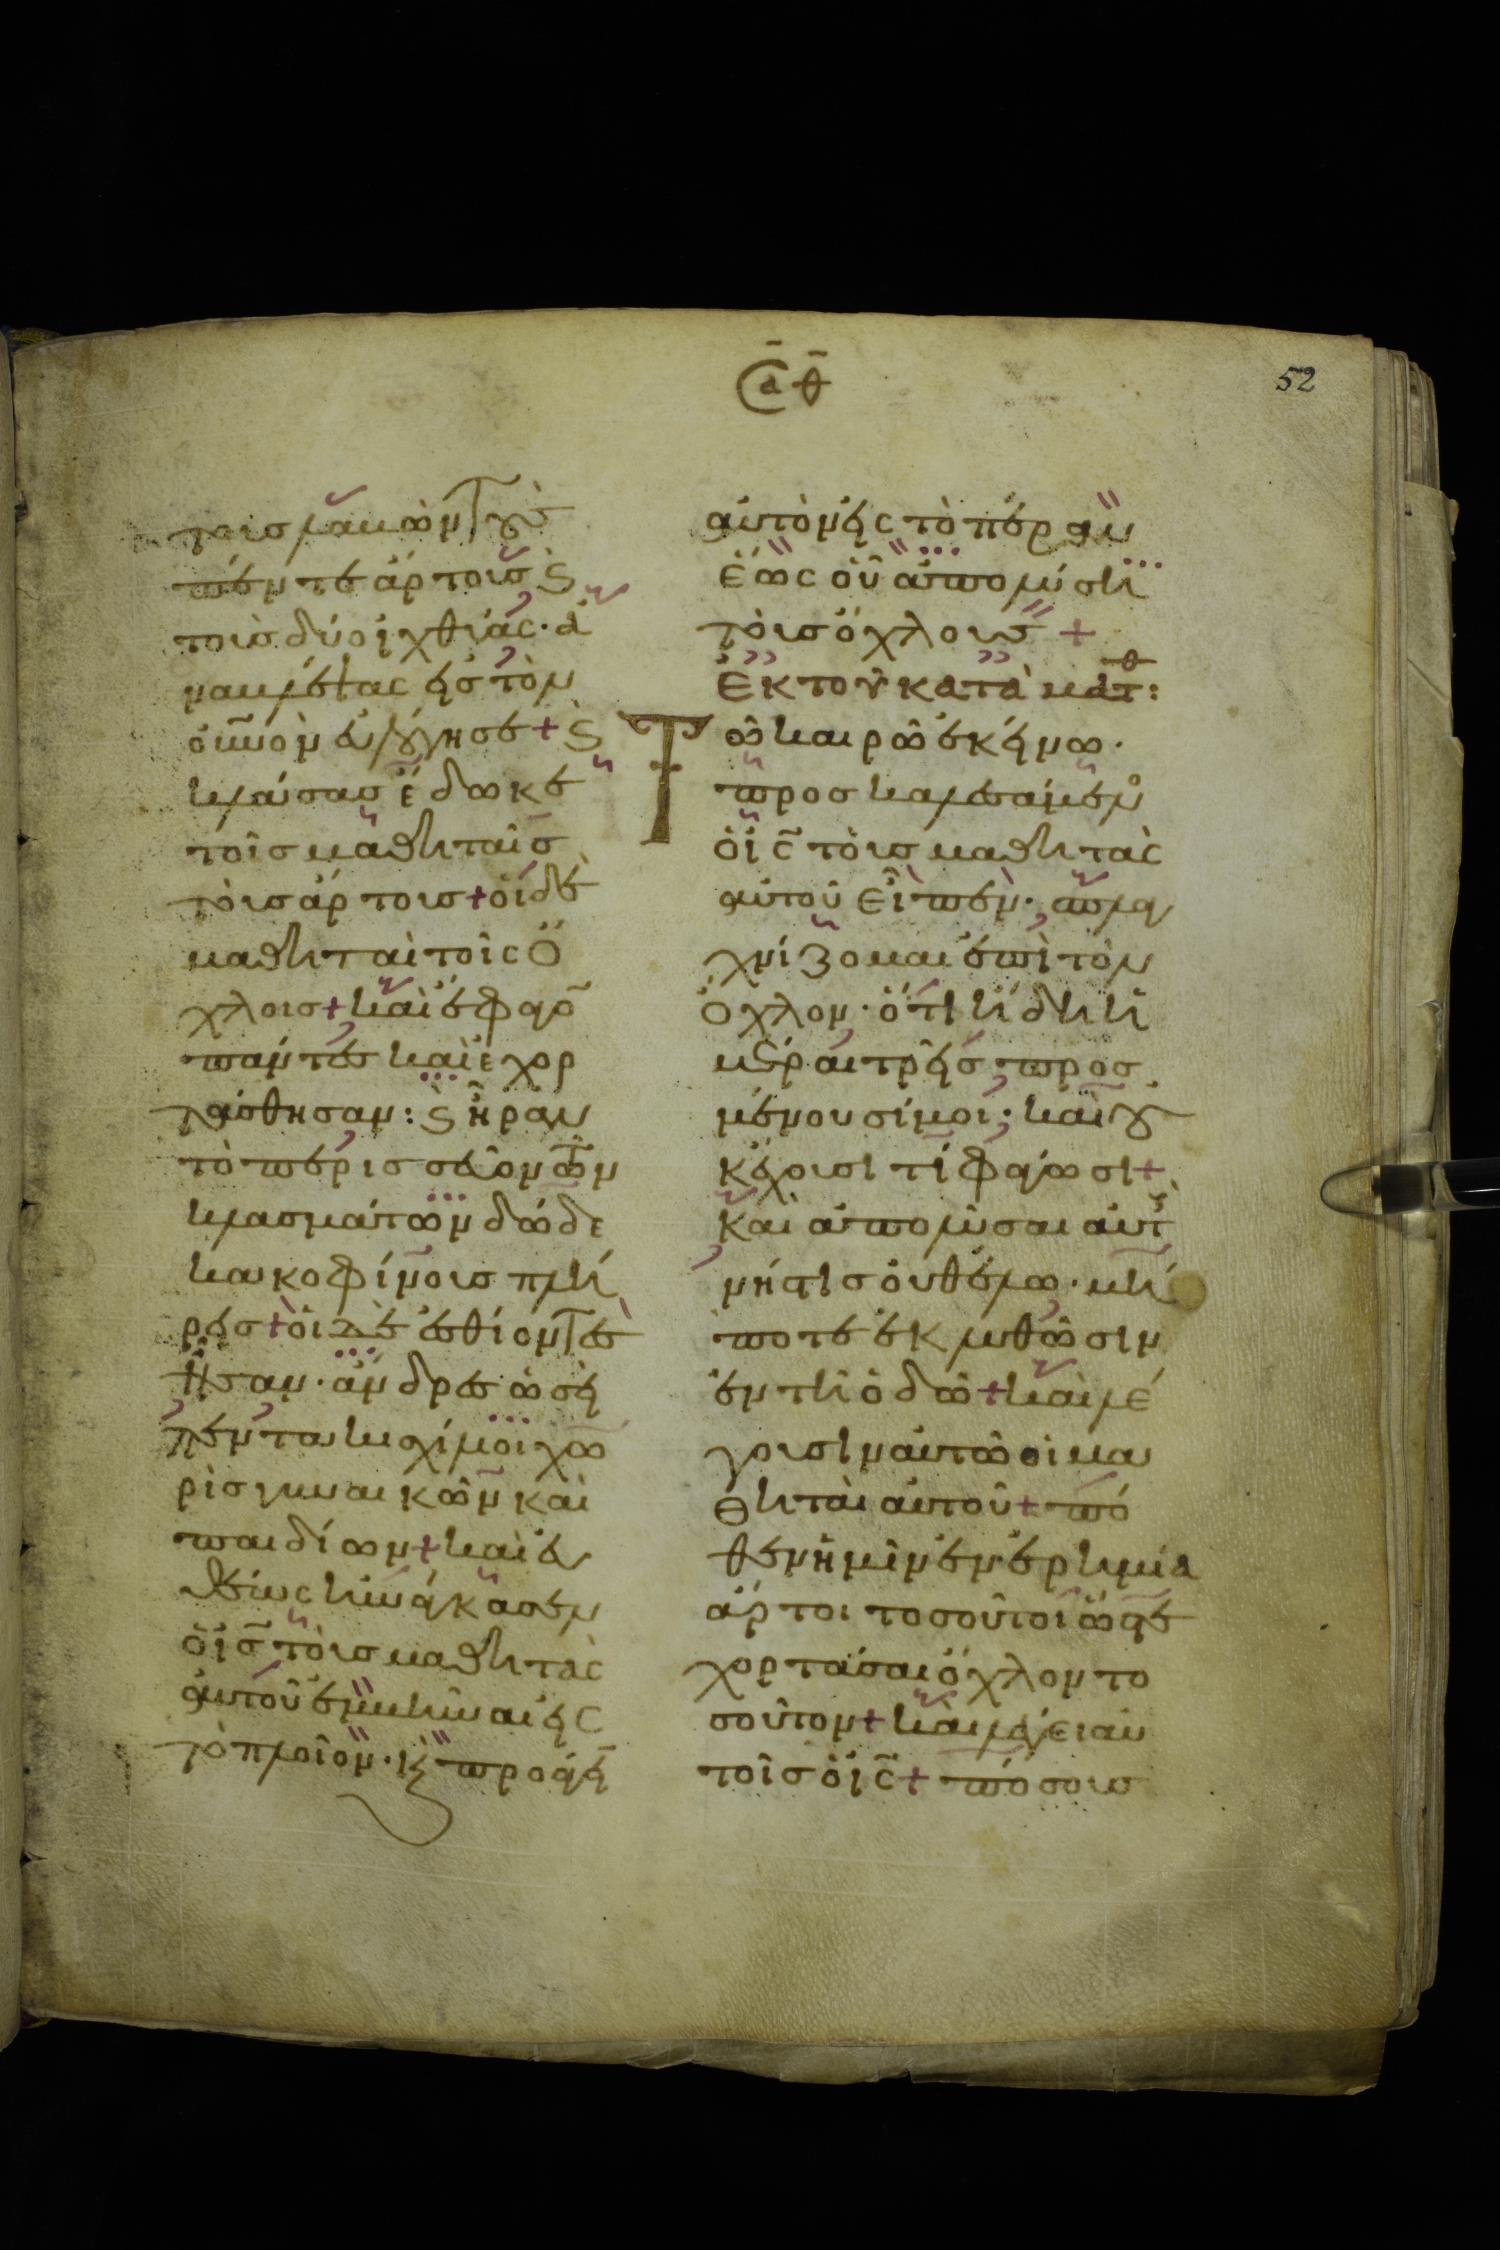 Cα θ
52
τους· λαβὼν τοὺς
πέντε ἄρτους ϗ
τοὺς δύο ἰχθύας· ἀ
ναβλέψας εἰς τὸν
οὐνὸν εὐλόγησε + ϗ
κλάσας ἔδωκε
τοῖς μαθηταῖς
τοὺς ἄρτους + οἱ δὲ
μαθηταὶ τοῖς ὄ
χλοις + καὶ ἔφαγō
πάντες καὶ ἐχορ
τάσθησαν : ϗ ἦραν
τὸ περισσεῦον τῶν
κλασμάτων δώδε
κα κοφίνους πλή
ρεις + οἱ δὲ ἐσθίοντες
ἦσαν· ἄνδρες ὡσεὶ
πεντακισχίλιοι χω
ρὶς γυναικῶν καὶ
παιδίων + καὶ εὐ
θέως ἠνάγκασεν
ὁ ις̄ τοὺς μαθητὰς
αὐτοῦ ἐμβῆναι εἰς
τὸ πλοῖον· ϗ προάγῃ
αὐτὸν εἰς τὸ πέραν
ἕως οὗ ἀπολύσῃ
τοὺς ὄχλους +
Ἐκ τοῦ κατὰ ματθ :
Τῶ καιρῶ ἐκείνω·
προσκαλεσάμενο
ὁ ις̄ τοὺς μαθητὰς
αὐτοῦ εἶπεν· σπλα
χνίζομαι ἐπὶ τὸν
ὄχλον· ὅτι ἤδη ἡ
μέραι τρεῖς προσ
μένουσί μοι· καὶ οὐ
κ ἔχουσι τί φάγωσι +
καὶ ἀπολῦσαι αὐτ
νήστις οὐ θέλω· μή
ποτε ἐκλυθῶσιν
ἐν τῆ ὁδῶ + καὶ λέ
γουσιν αὐτῶ οἱ μα
θηταὶ αὐτοῦ + πό
θεν ἡμῖν ἐν ἐρημία
ἄρτοι τοσοῦτοι ὥστε
χορτάσαι ὄχλον το
σοῦτον + καὶ λέγει αὐ
τοῖς ὁ ις̄ + πόσους